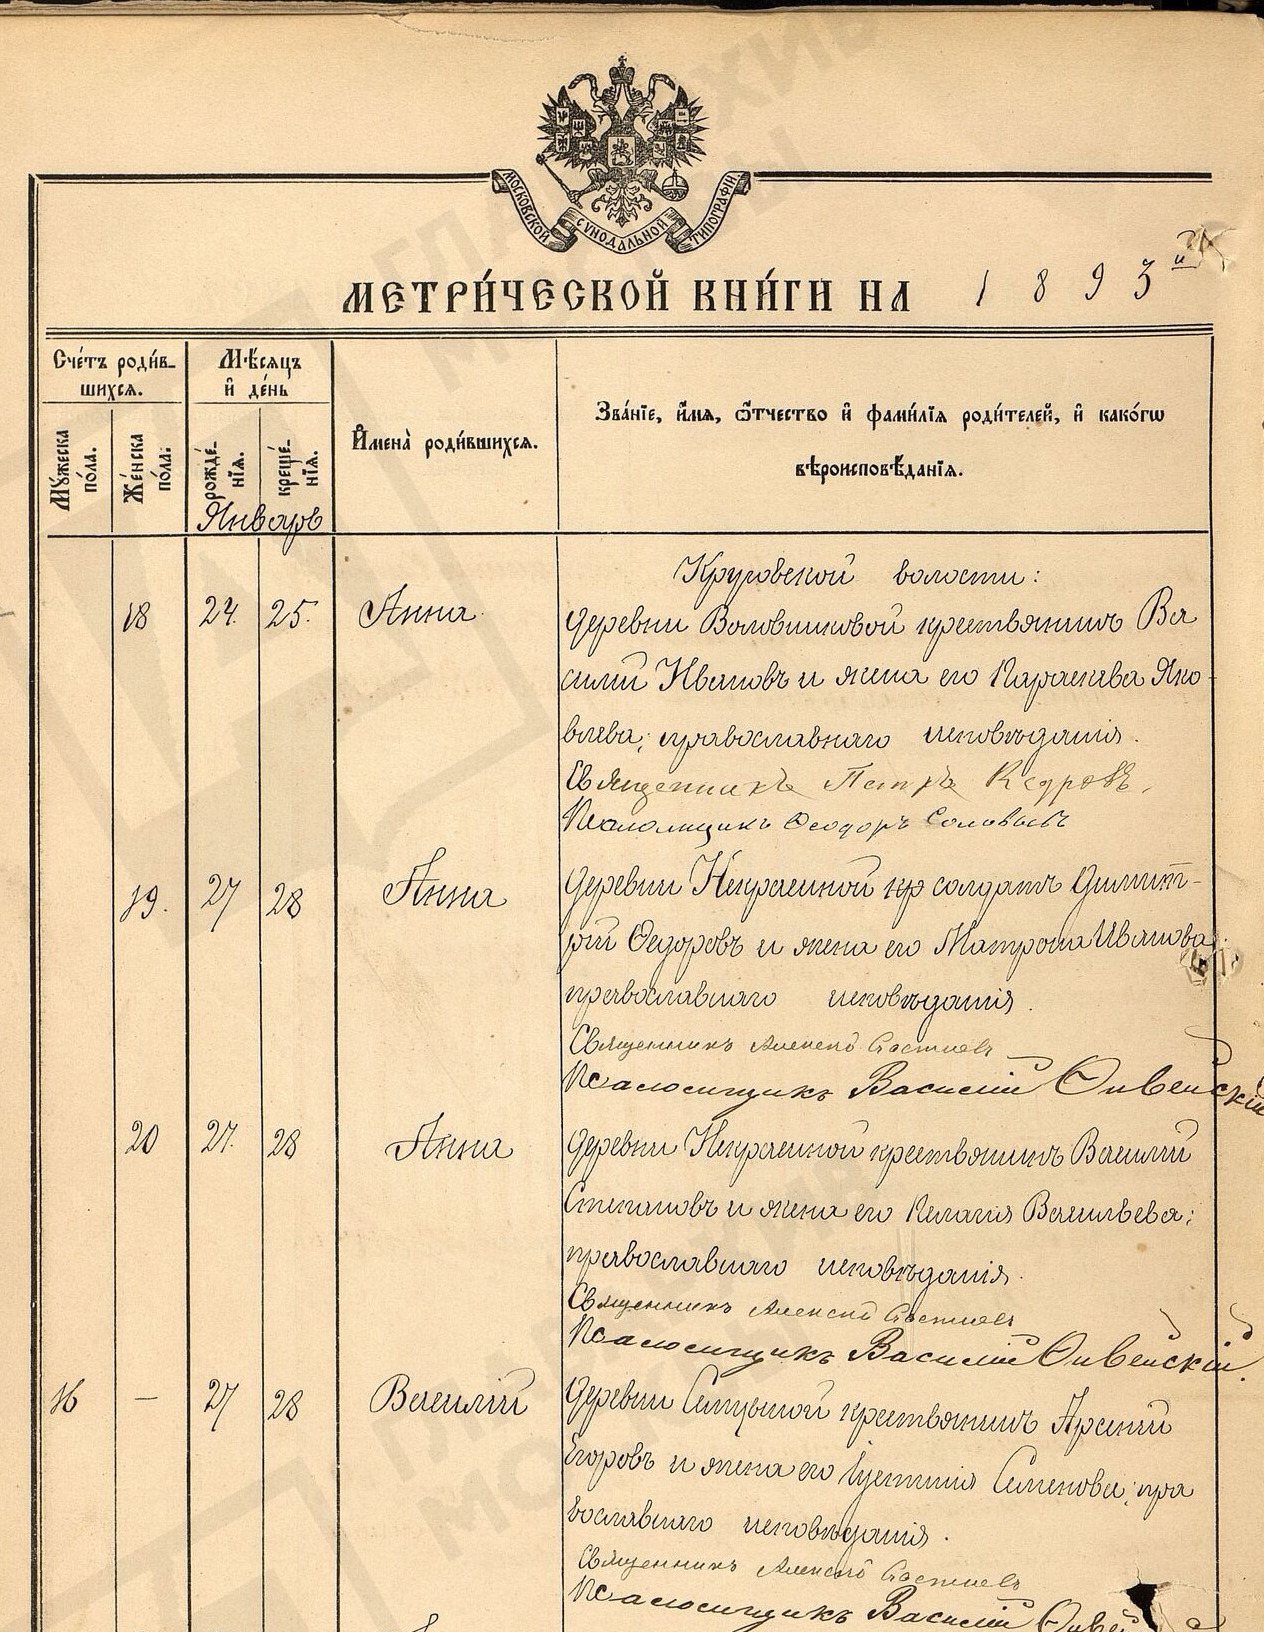 МОСКОВСКОЙ СѴНОДАЛЬНОЙ ТИПОГРАФІИ.
МЕТРИ́ЧЕСКОЙ КНИ́ГИ НА 1893й
Сче́тъ роди́в-
шихся.
Мѣ́сяцъ
и҆ де́нь
Мꙋ́жеска
по́ла.
Же́нска
по́ла.
рожде́-
нїѧ.
креще́-
нїѧ.
Январь
И҆мена̀ роди́вшихся.
Зва́нїе, и҆́мя, ѻ҆́тчество и҆ фами́лїя роди́телей, и҆ како́гѡ
вѣроисповѣ́данїя.
Круговской волости:
18 24. 25. Анна
деревни Воловниковой крестьянинъ Ва
силій Ивановъ и жена его Параскева Яко-
влева; православнаго исповѣданія.
Священникъ Петръ Кедровъ,
Псаломщикъ Ѳеодоръ Соловьевъ
19. 27 28 Анна
деревни Некрасиной кр солдатъ Димит-
рій Ѳедоровъ и жена его Матрона Иванова
православнаго исповѣданія.
Священникъ Алексѣй
Псаломщикъ Василій Ѳивейскій
20 27. 28 Анна
деревни Некрасиной крестьянинъ Василій
Степановъ и жена его Пелагія Васильева;
православнаго исповѣданія.
Священникъ Алексій
Псаломщикъ Василій Ѳивейскій.
16 — 27 28 Василій
деревни крестьянинъ Арсеній
Егоровъ и жена его Іустинія Семенова; пра
вославнаго исповѣданія.
Священникъ Алексѣй
Псаломщикъ Василій